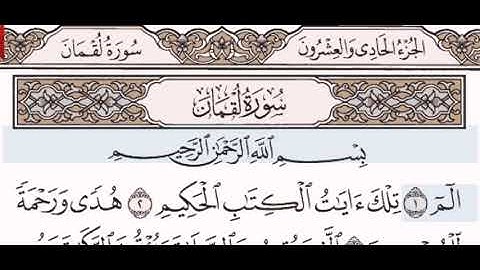 الجُزْءُ الحَادِى وَالعِشْرُونَ
سُورَةُ لُقْمَانَ
سُورَةُ لُقْمَانَ
بِسْمِ ٱللَّهِ ٱلرَّحْمَٰنِ ٱلرَّحِيمِ
الٓمٓ ١ تِلْكَ ءَايَٰتُ ٱلْكِتَٰبِ ٱلْحَكِيمِ ٢ هُدًى وَرَحْمَةً